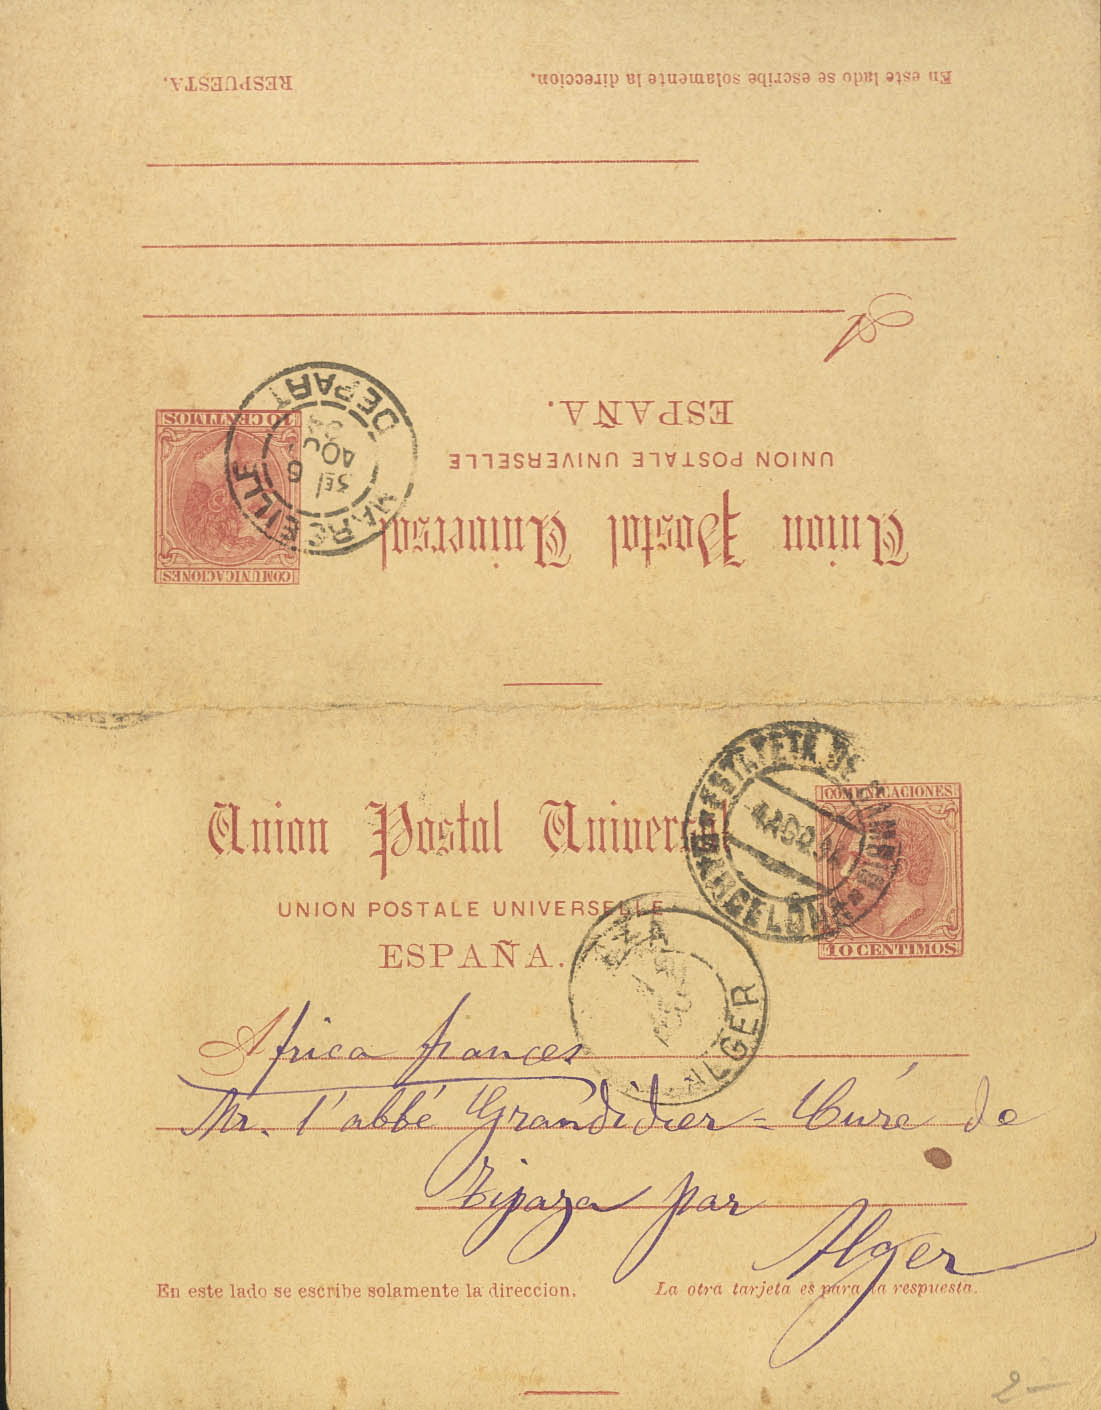 RESPUESTA.
En este lado se escribe solamente la direccion.
A
ESPAÑA.
UNION POSTALE UNIVERSELLE
Union Postal Universal
10 CENTIMOS
COMUNICACIONES
MARSEILLE
DEPART
6
AOU
Union Postal Universal
UNION POSTALE UNIVERSELLE
ESPAÑA.
COMUNICACIONES
10 CENTIMOS
ESTAFETA DE CAMBIO
4 AGO 94
BARCELONA
ALGER
Africa frances
Mr. l'abbé Grandidier = Curé de
Tipaza par
Alger
En este lado se escribe solamente la direccion.
La otra tarjeta es para la respuesta.
2-